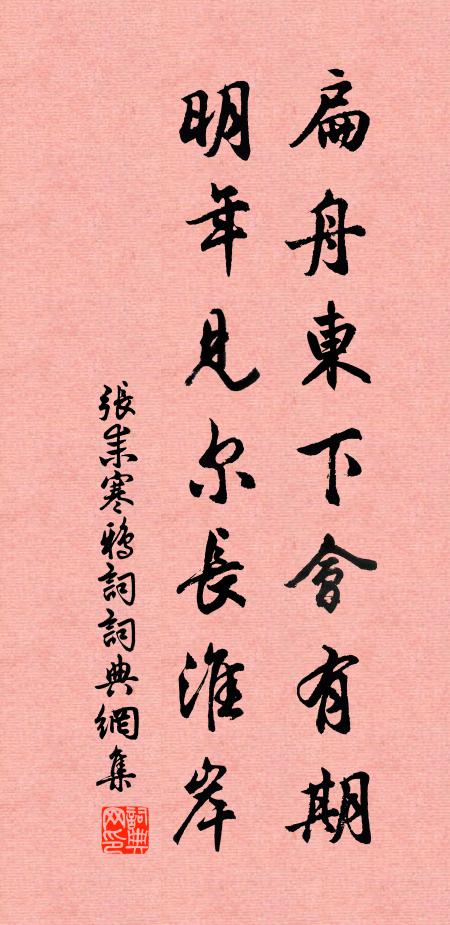 扁舟東下會有期
明年見尔長淮岸
張耒寒鴉詞詞典網集
詞典网印